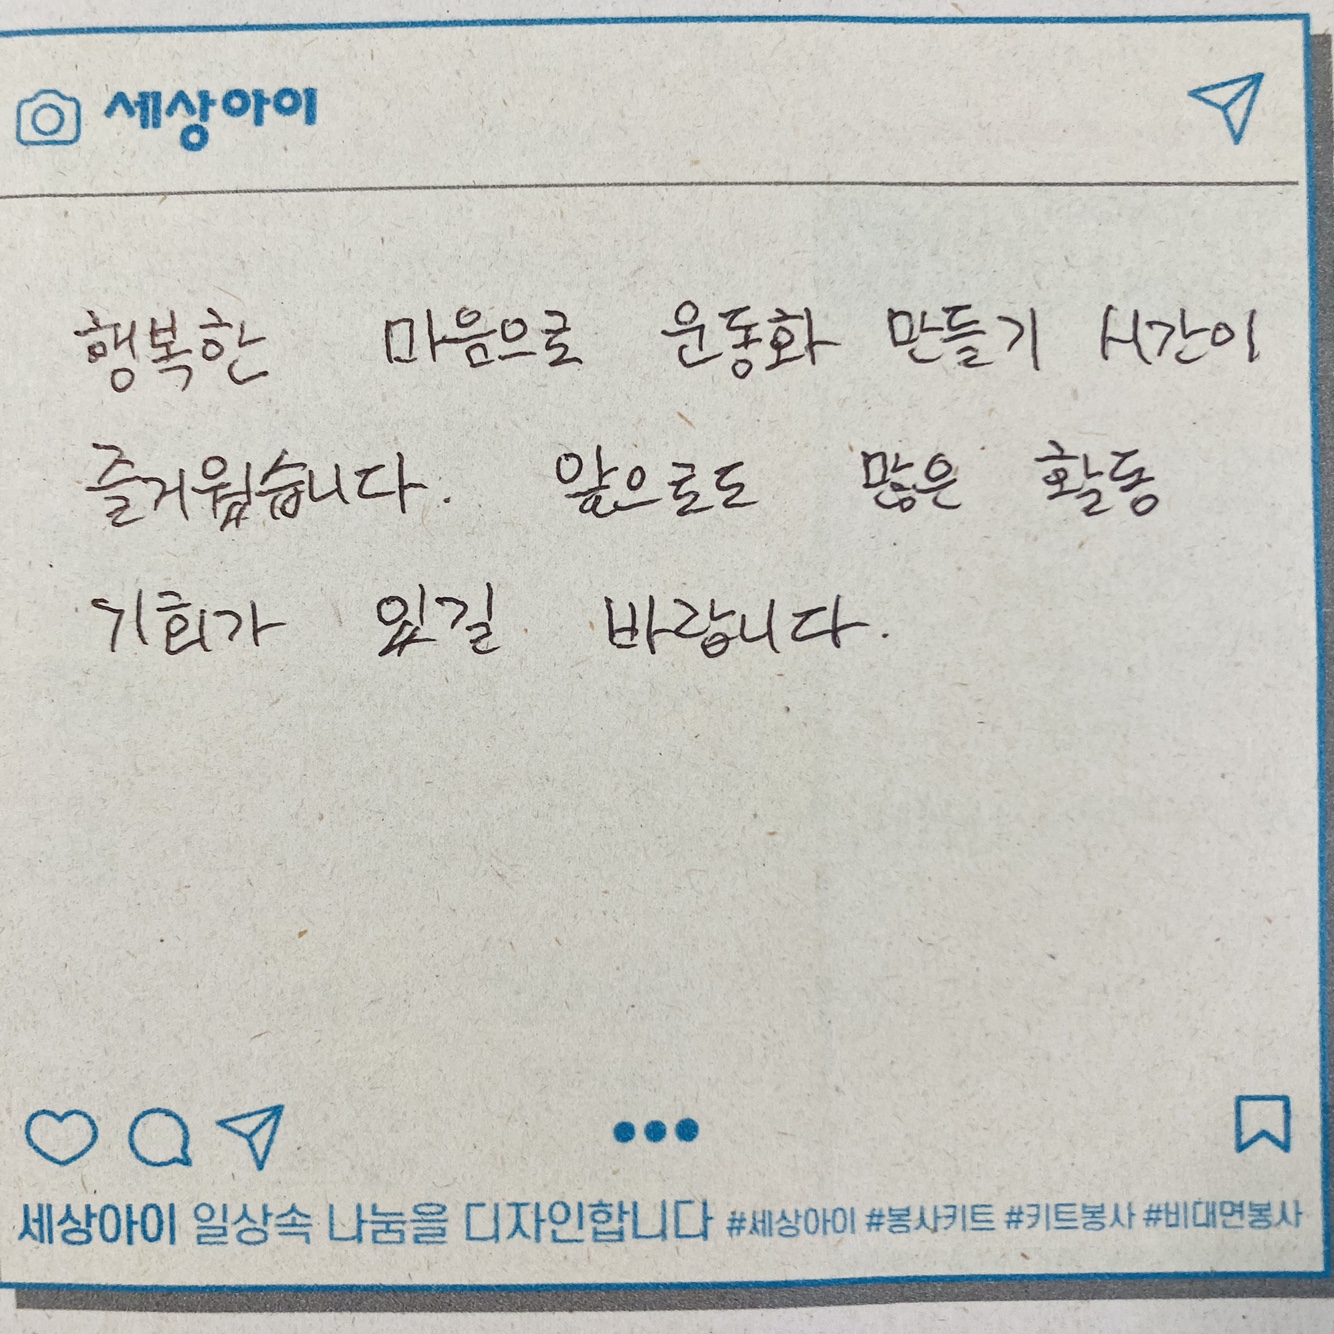 세상아이
행복한 마음으로 운동화 만들기 시간이
즐거웠습니다. 앞으로도 많은 활동
기회가 있길 바랍니다.
세상아이 일상속 나눔을 디자인합니다 #세상아이 #봉사키트 #키트봉사 #비대면봉사